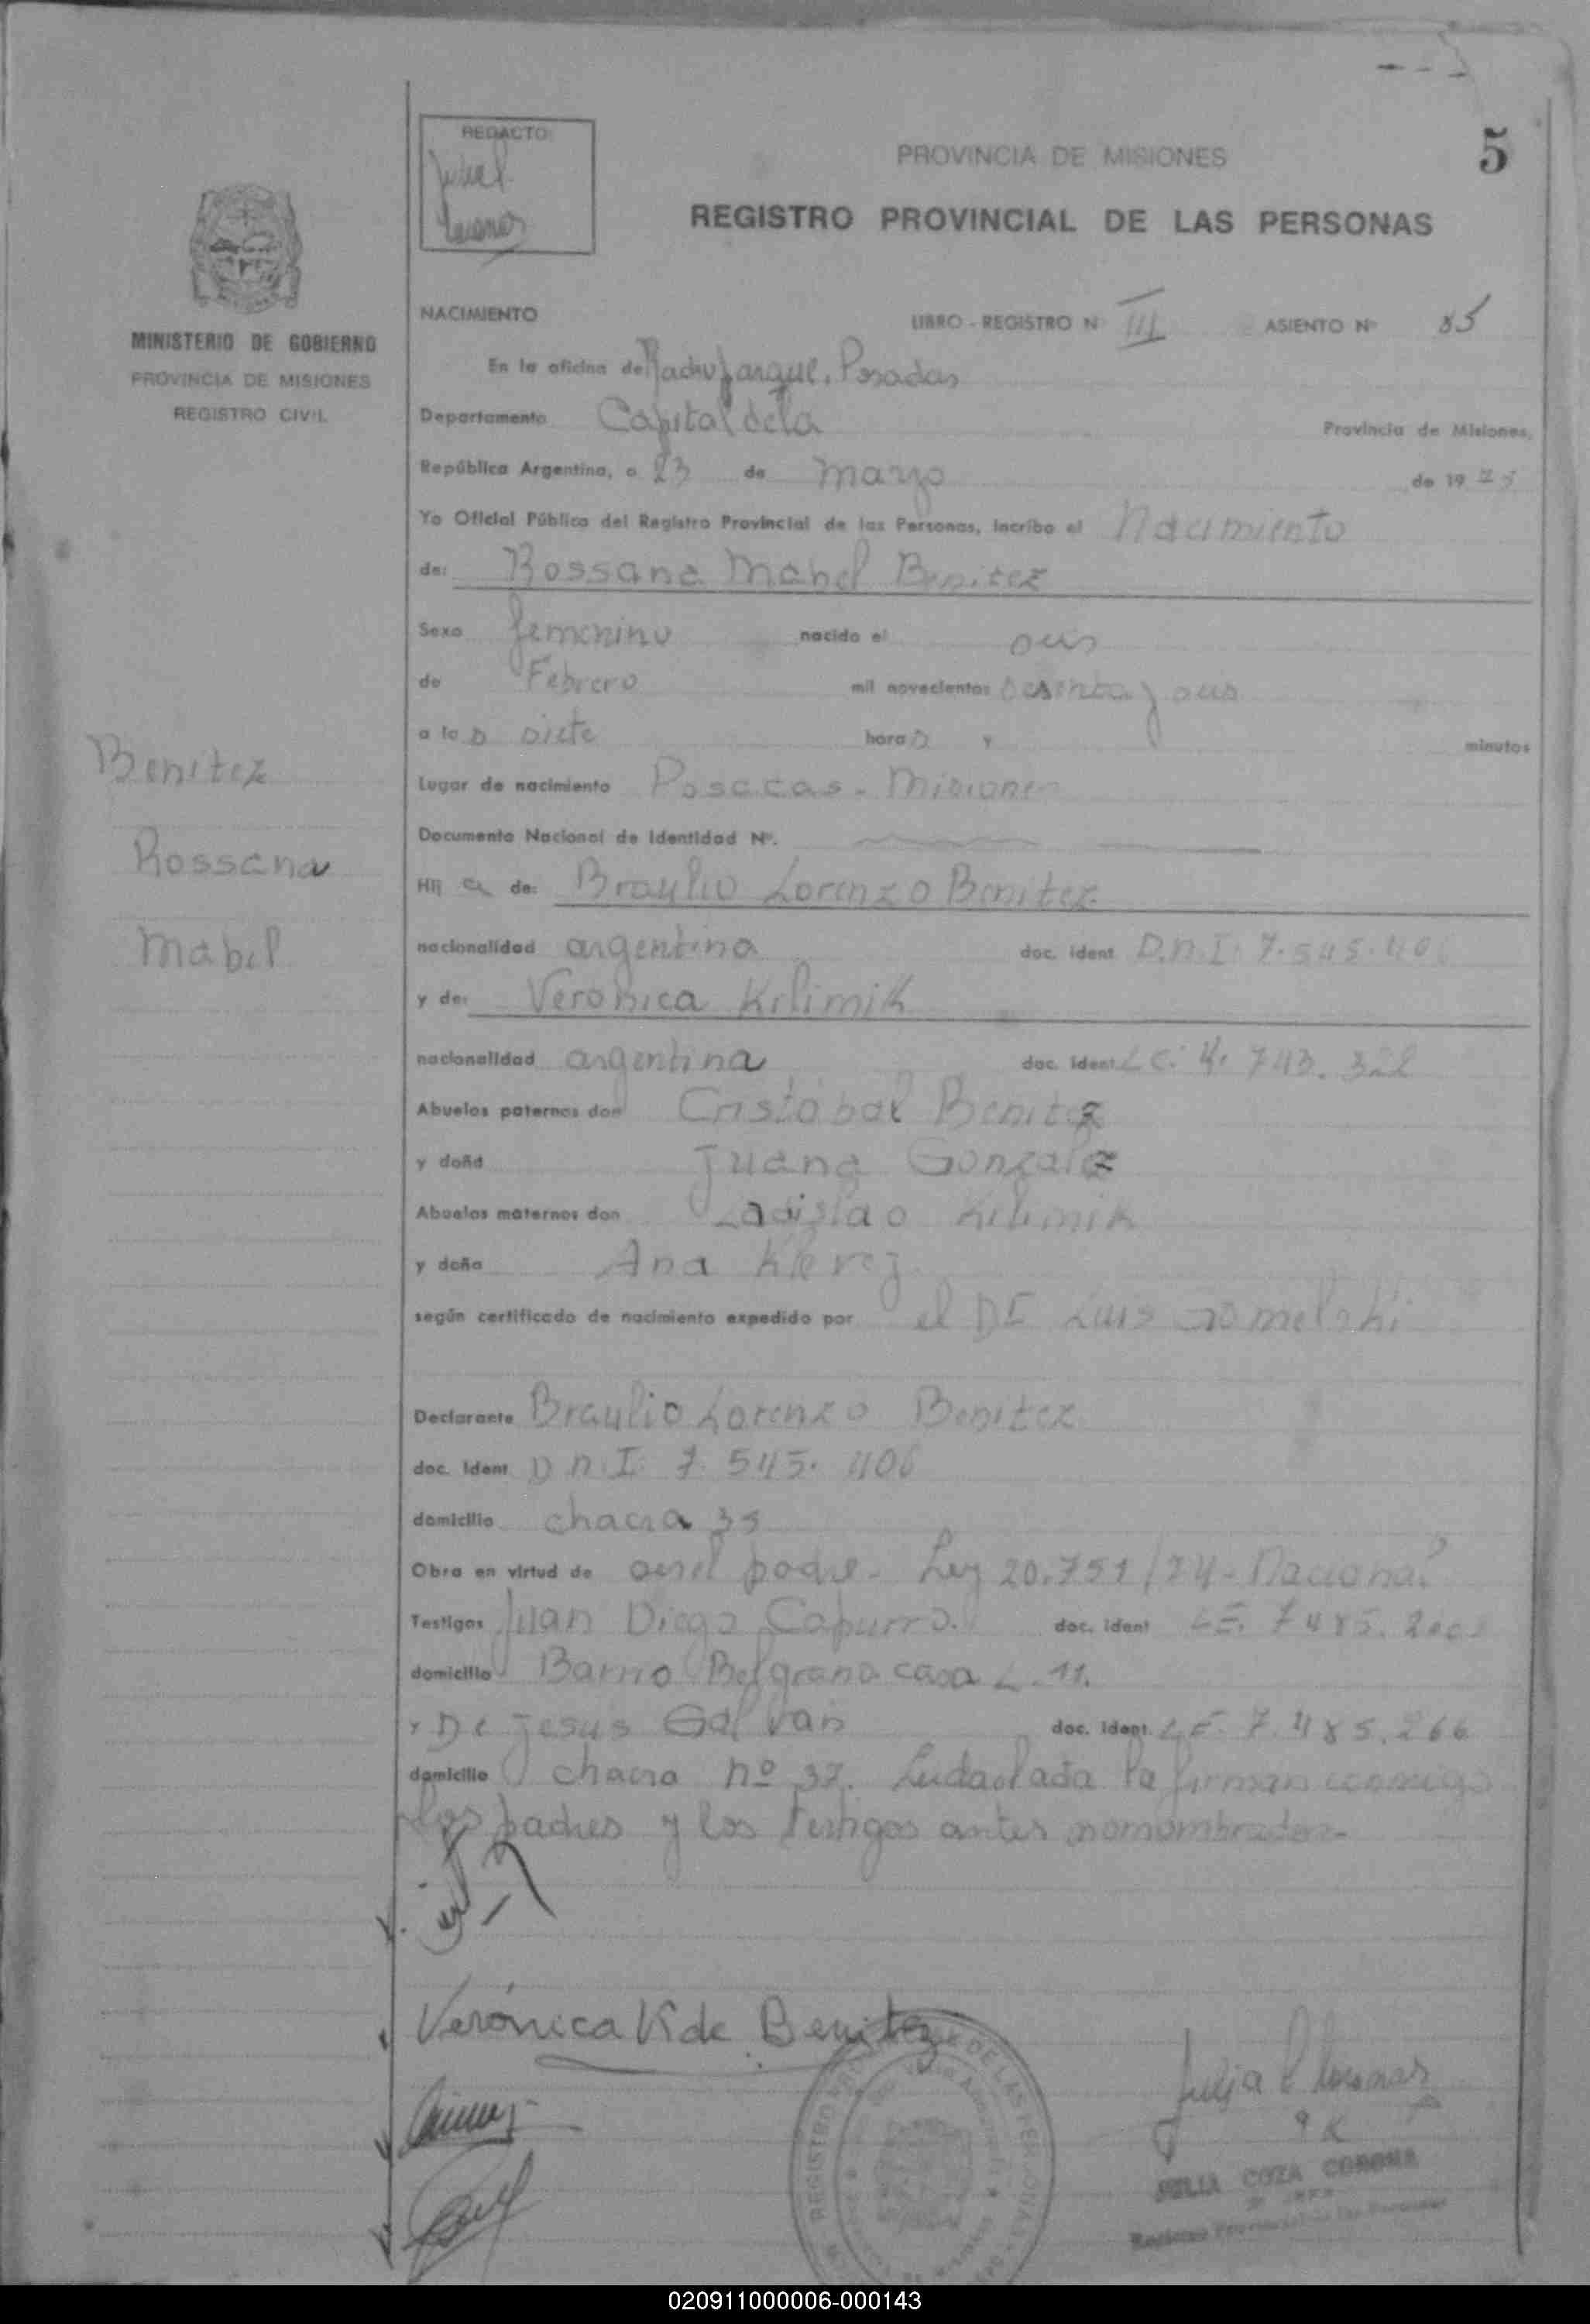 5
REDACTO:
PROVINCIA DE MISIONES
REGISTRO PROVINCIAL DE LAS PERSONAS
MINISTERIO DE GOBIERNO
PROVINCIA DE MISIONES
REGISTRO CIVIL
NACIMIENTO LIBRO - REGISTRO Nº III ASIENTO Nº 85
En la oficina de Posadas
Departamento Capital de la Provincia de Misiones,
República Argentina, a 23 de marzo de 19
Yo Oficial Público del Registro Provincial de las Personas, incribo el Nacimiento
de: Rossana Mabel Benitez
Sexo femenino nacido el
de Febrero mil novecientos
a las siete horas y minutos
Benitez
Rossana
Mabel
Lugar de nacimiento Posadas - Misiones
Documento Nacional de Identidad Nº.
Hij a de: Braulio Lorenzo Benitez
nacionalidad argentina doc. ident. D.N.I. 7.545.406
y de: Veronica Kilimik
nacionalidad argentina doc. ident. L.C. 4.743.322
Abuelos paternos don Cristobal Benitez
y doña Juana Gonzalez
Abuelos maternos don Ladislao Kilimik
y doña Ana
según certificado de nacimiento expedido por el Dr Luis
Declarante Braulio Lorenzo Benitez
doc. ident D.N.I. 7.545.406
domicilio chacra 35
Obra en virtud de ser el padre - Ley 20.751/74 - Nacional
Testigos Juan Diego Capurro. doc. ident L.E. 7485.
domicilio Barrio Belgrano casa 11.
y De Jesus Galvan doc. ident. L.E. 7.485.266
domicilio chacra nº 37. Leida el acta la firman conmigo
los padres y los testigos antes nomombrados-
Verónica K de Benitez
REGISTRO DE LAS PERSONAS
JULIA COZA CORONA
Registro Provincial de las Personas
020911000006-000143